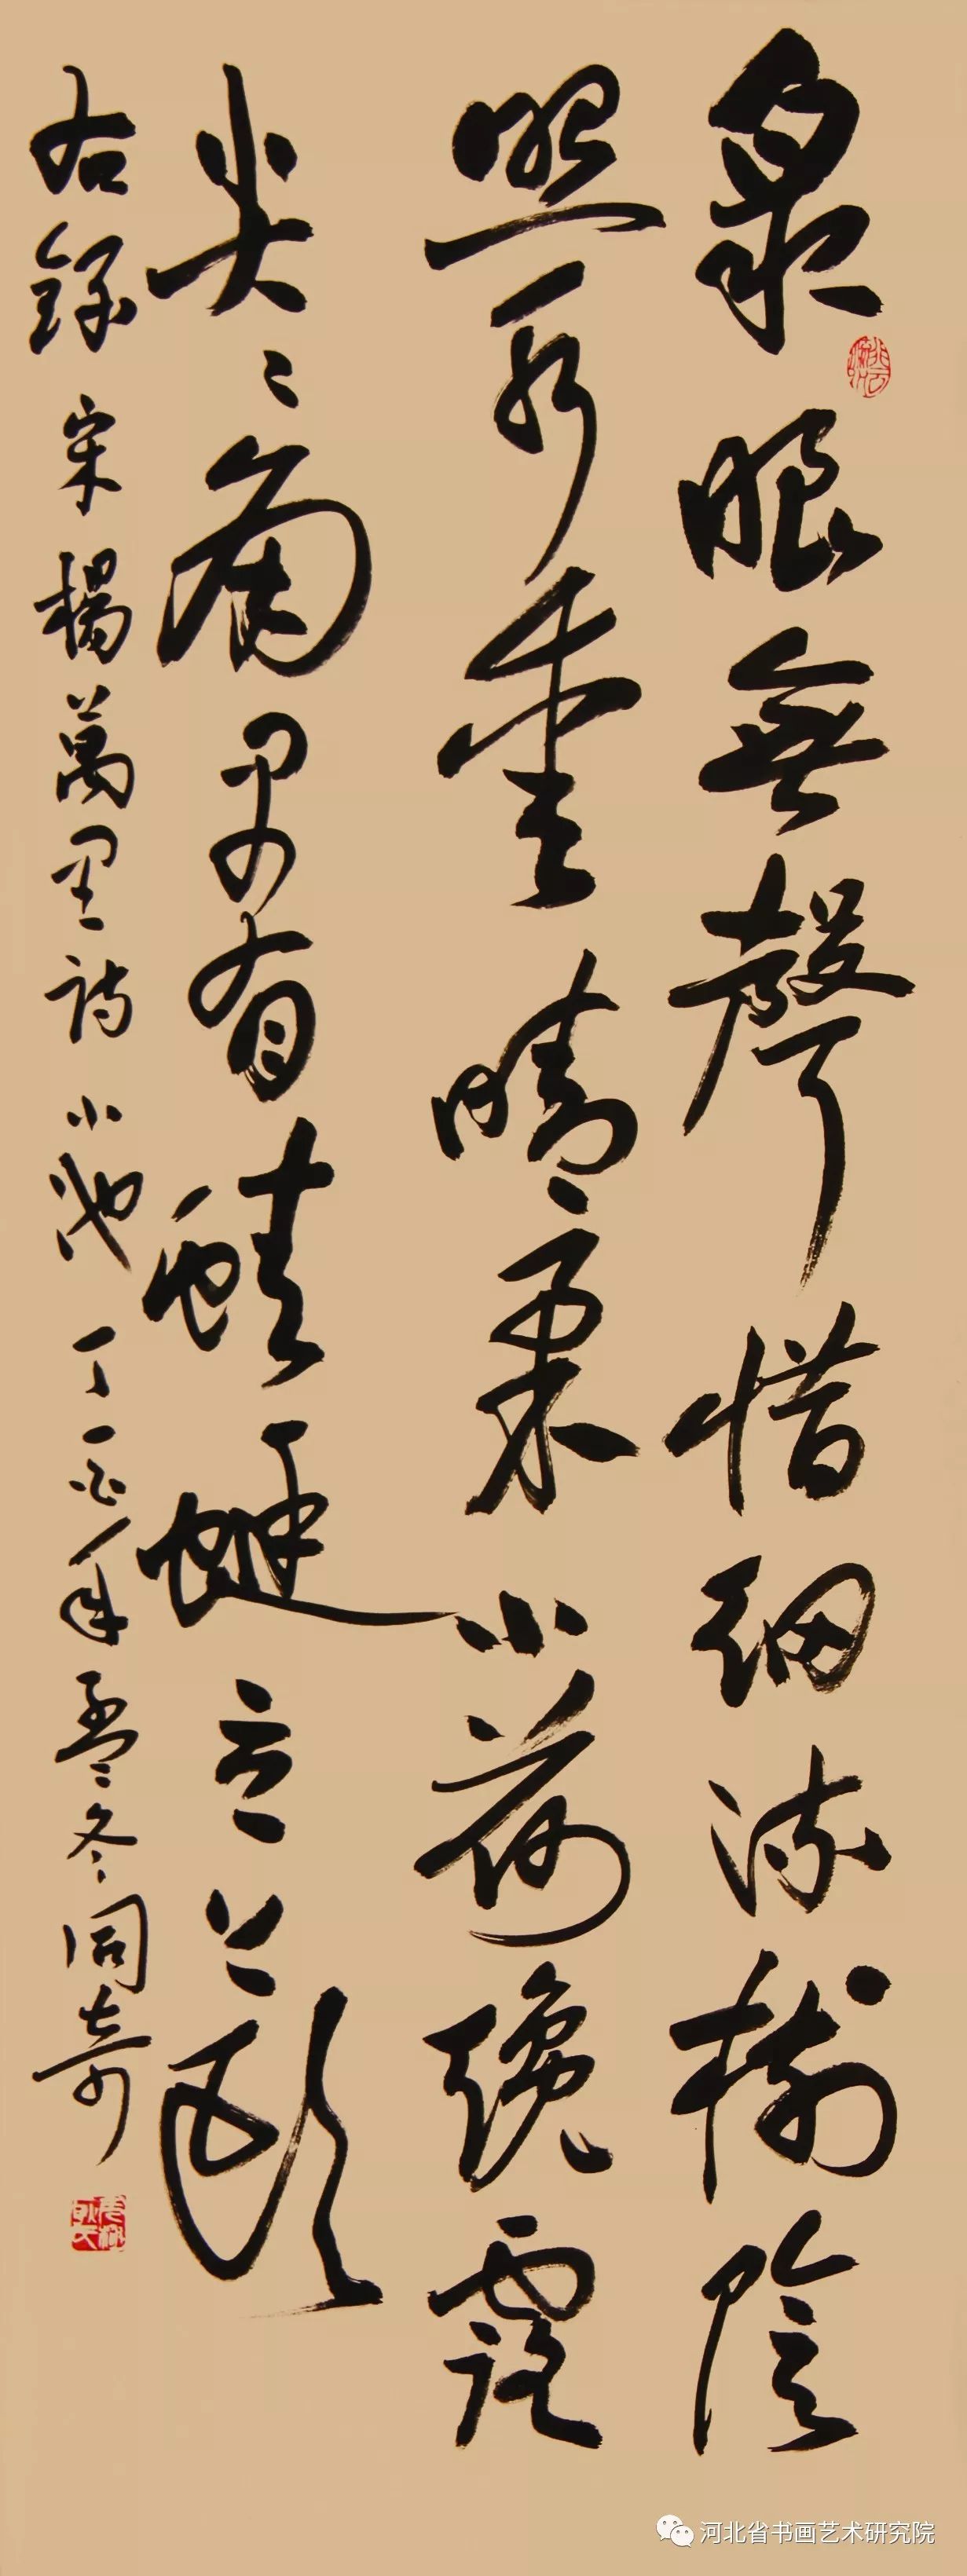 泉眼無聲惜細流樹陰
照水愛晴柔小荷纔露
尖〻角早有蜻蜓立上頭
右錄宋楊萬里詩小池丁酉年孟冬同奇
河北省书画艺术研究院